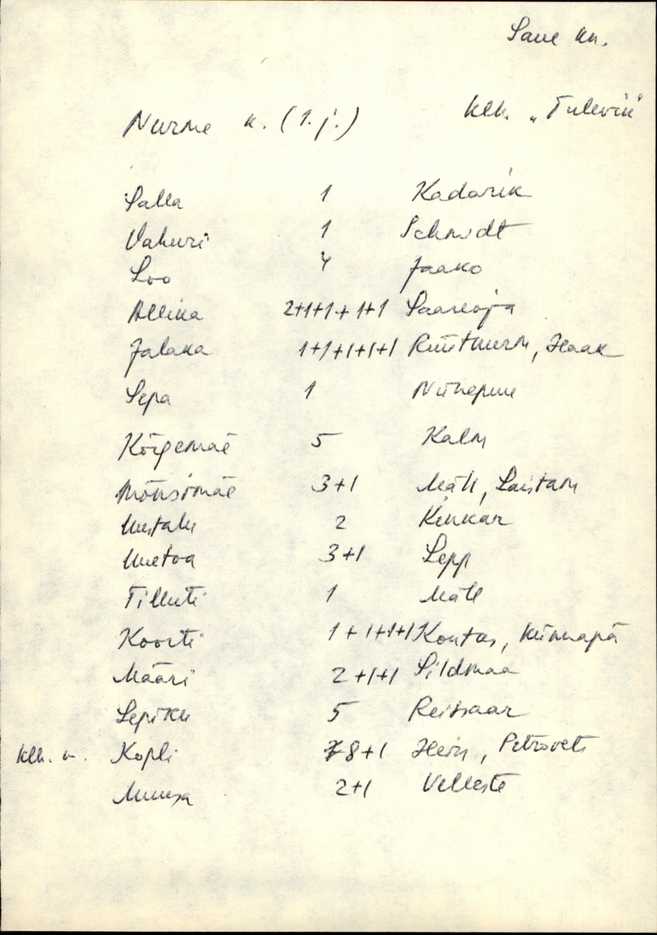 Saue kn.
Nurme k. (1. j.) klh. "Tulevik"
Salla 1 Kadarik
Vahuri 1 Schmidt
Loo 4 Jaako
Allika 2+1+1+1+1 Saareoja
Jalaka 1+1+1+1+1 Rüütmurm, Haak
Sepa 1 Niinepuu
Kõrgemäe 5 Kalm
Mõnsimäe 3+1 Mäll, Laistam
2 Kinkar
Uuetoa 3+1 Lepp
Tilluti 1 Mäll
Koorti 1+1+1+1 Kontas, Künnapä
Määri 2+1+1 Sildmaa
Lepiku 5 Reissaar
klh. u. Kopli 8+1 Hein, Petrovets
2+1 Velleste